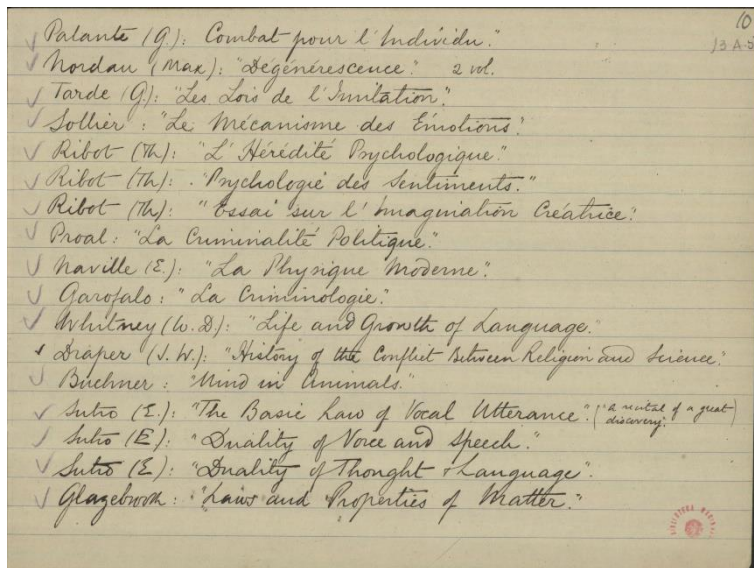 10
13A-5
Palante (G.): Combat pour l'Individu."
Nordau (Max): "Dégénérescence." 2 vol.
Tarde (G.): "Les Lois de l'Imitation".
Sollier : "Le Mécanisme des Émotions".
Ribot (Th): "L'Hérédité Psychologique."
Ribot (Th): "Psychologie des Sentiments."
Ribot (Th): "Essai sur l'Imagination Créatrice".
Proal: "La Criminalité Politique".
Naville (E.): "La Physique Moderne".
Garofalo: "La Criminologie".
Whitney (W. D.): "Life and Growth of Language."
Draper (J. W.): "History of the Conflict Between Religion and Science".
Büchner : "Mind in Animals."
Sutro (E.): "The Basic Law of Vocal Utterance". ("a recital of a great discovery".)
Sutro (E): "Duality of Voice and Speech."
Sutro (E): "Duality of Thought & Language".
Glazebrook : "Laws and Properties of Matter."